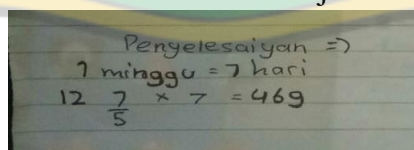 Penyelesaiyan =>
1 minggu = 7 hari
12 7/5 × 7 = 469